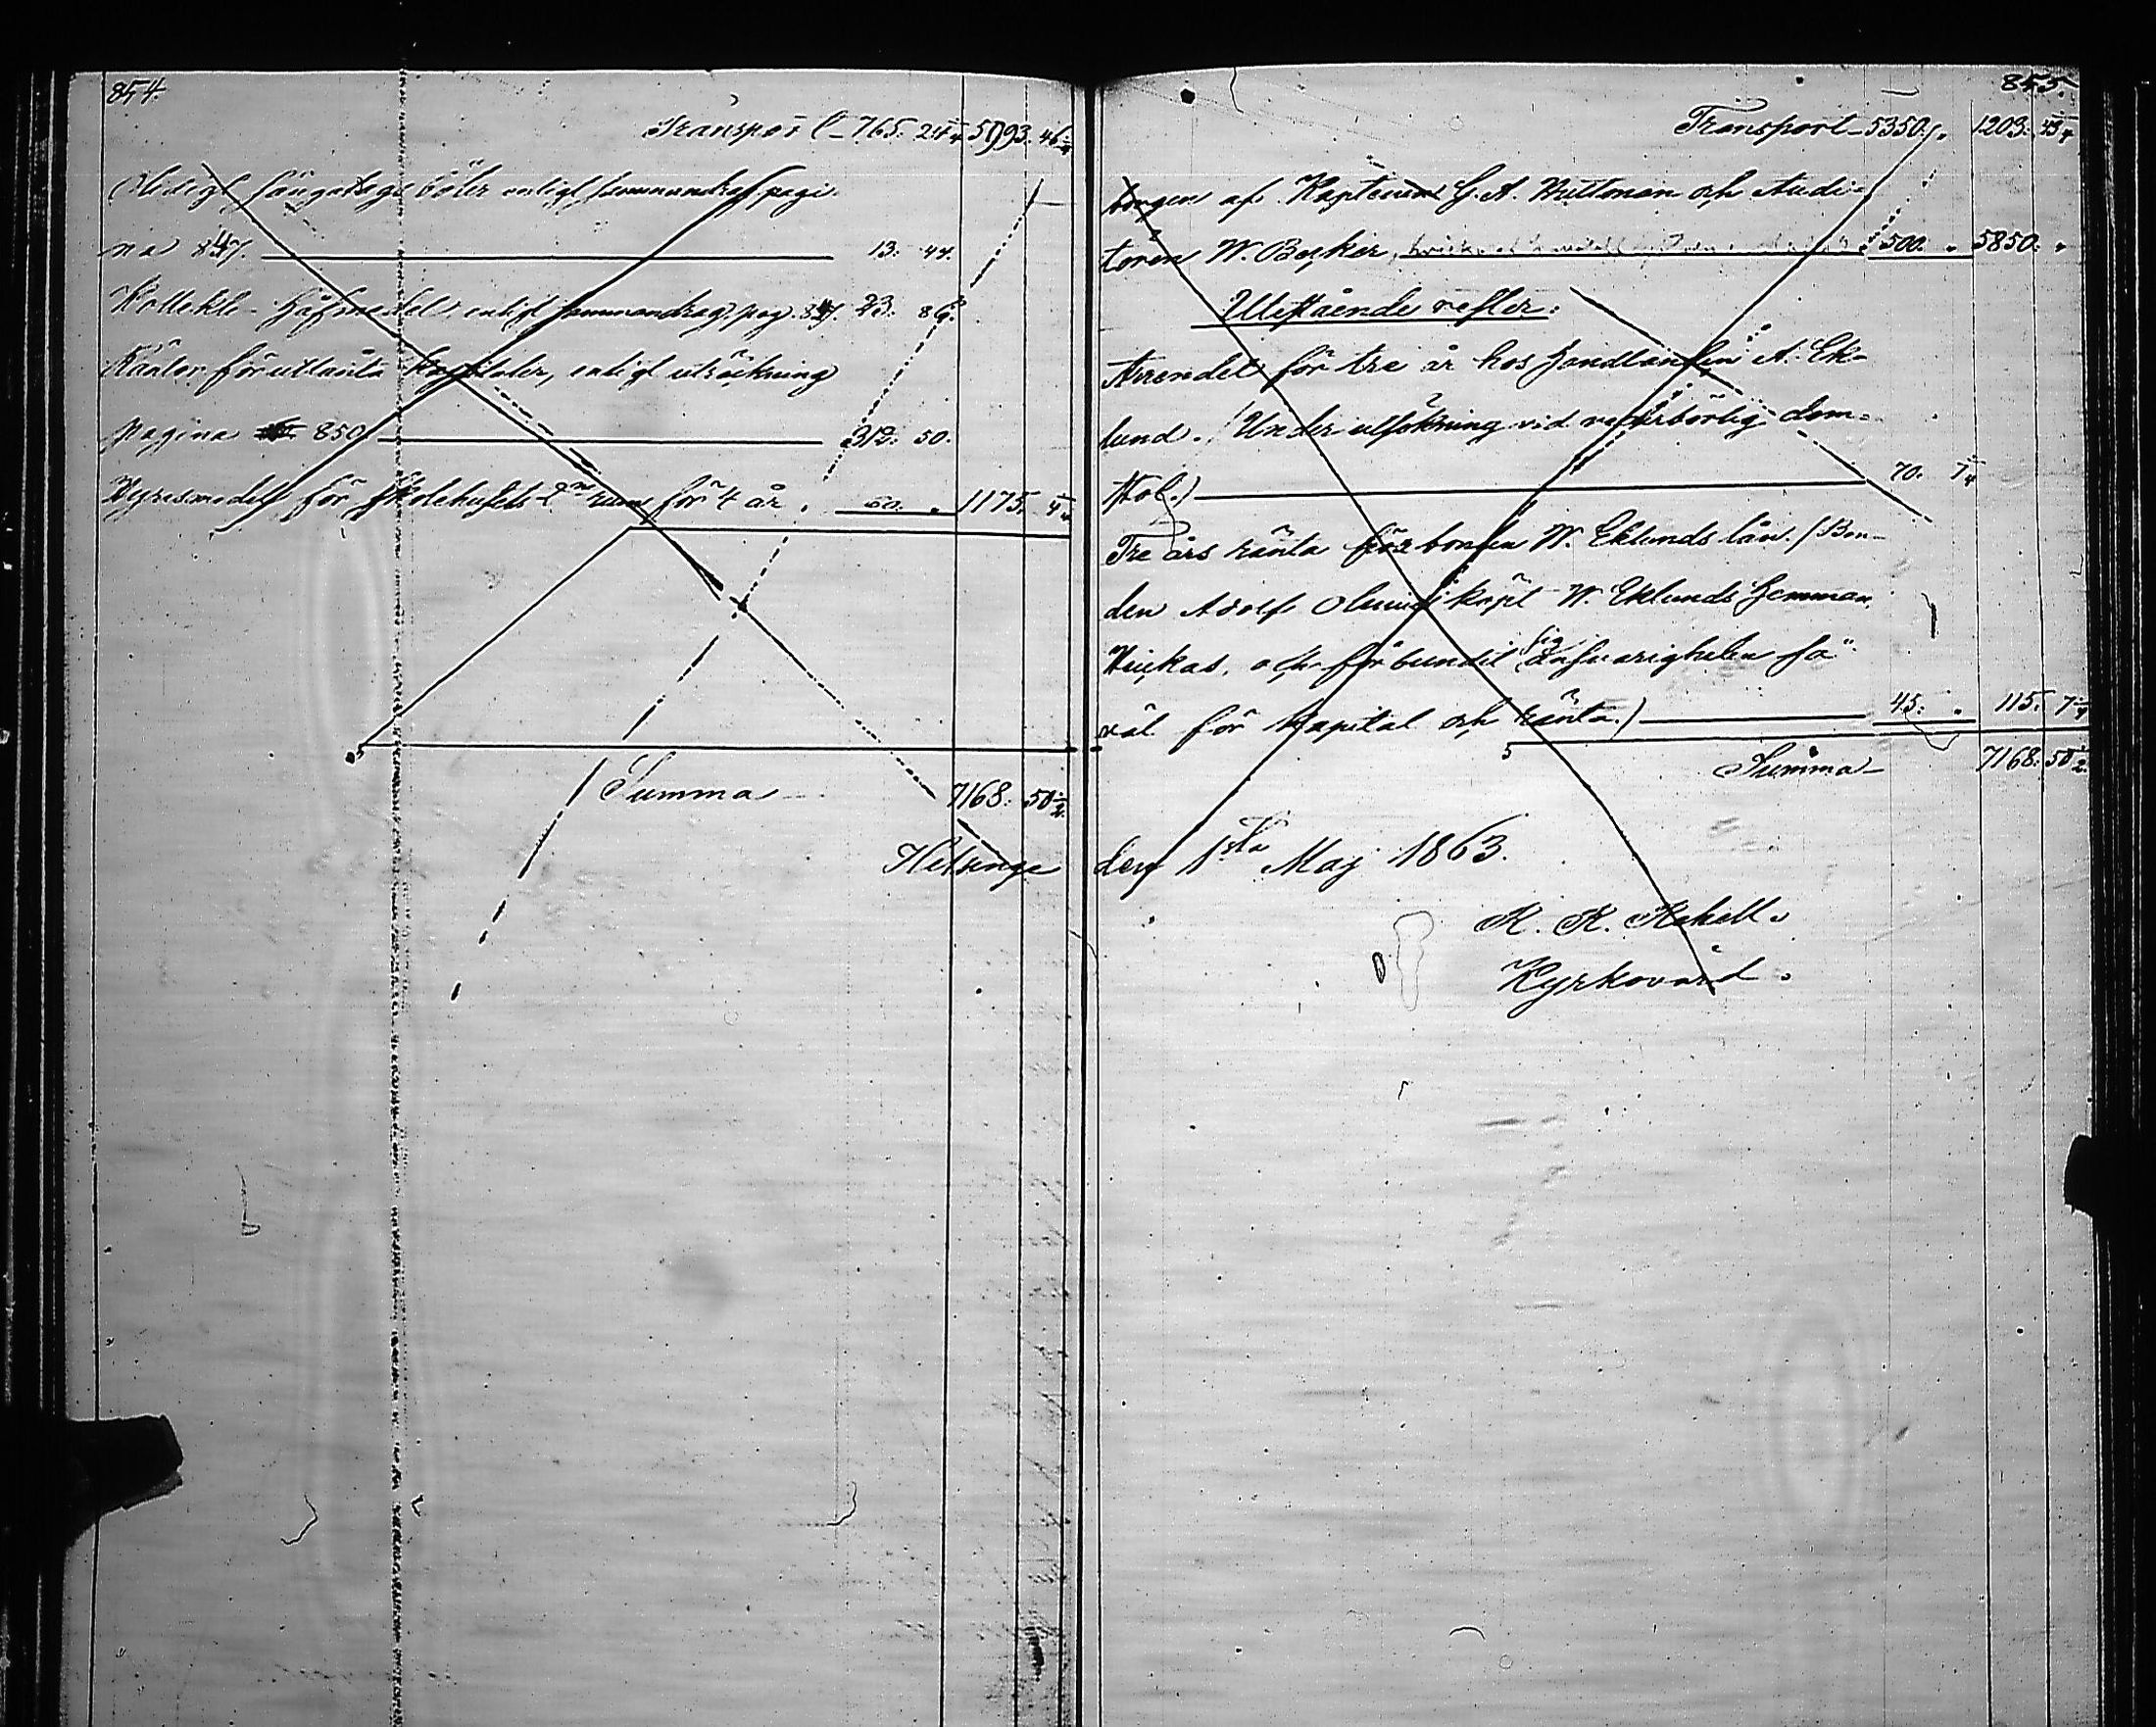 854.
Transport - 765. 24 1/4 5993. 46 1/4
Oledigt sängalags böter enligt sammandrag pagi-
na 847. 13. 44.
Kollekt- Håfmedel, enligt sammandrag pag. 847. 23. 86.
Räntor för utlånta kapitaler, enligt uträkning
pagina 850. 312. 50.
Hyresmedel för skolehusets 2ne rum för 4 år. 60. „ 1175. 4 1/4
Summa - 7168. 50 1/2
Helsinge
855.
Transport - 5350. „ 1203. 43 1/4
borgen af Kaptenen G. A. Wuttman och Audi-
tören W. Becker, 500. „ 5850. „
Utestående rester:
Arrendet för tre år hos Handlanden A. Ek-
lund. (Under utsökning vid vederbörlig dom-
stol.) 70. 7 1/4
Tre års ränta för bonden W. Eklunds lån. (Bon-
den Adolf köpt W. Eklunds hemman
och förbundit sig ansvarigheten så-
väl för kapital och ränta.) 45. „ 115. 7 1/4
Summa - 7168. 50 1/2
den 1sta Maj 1863.
K. K.
Kyrkovärd.